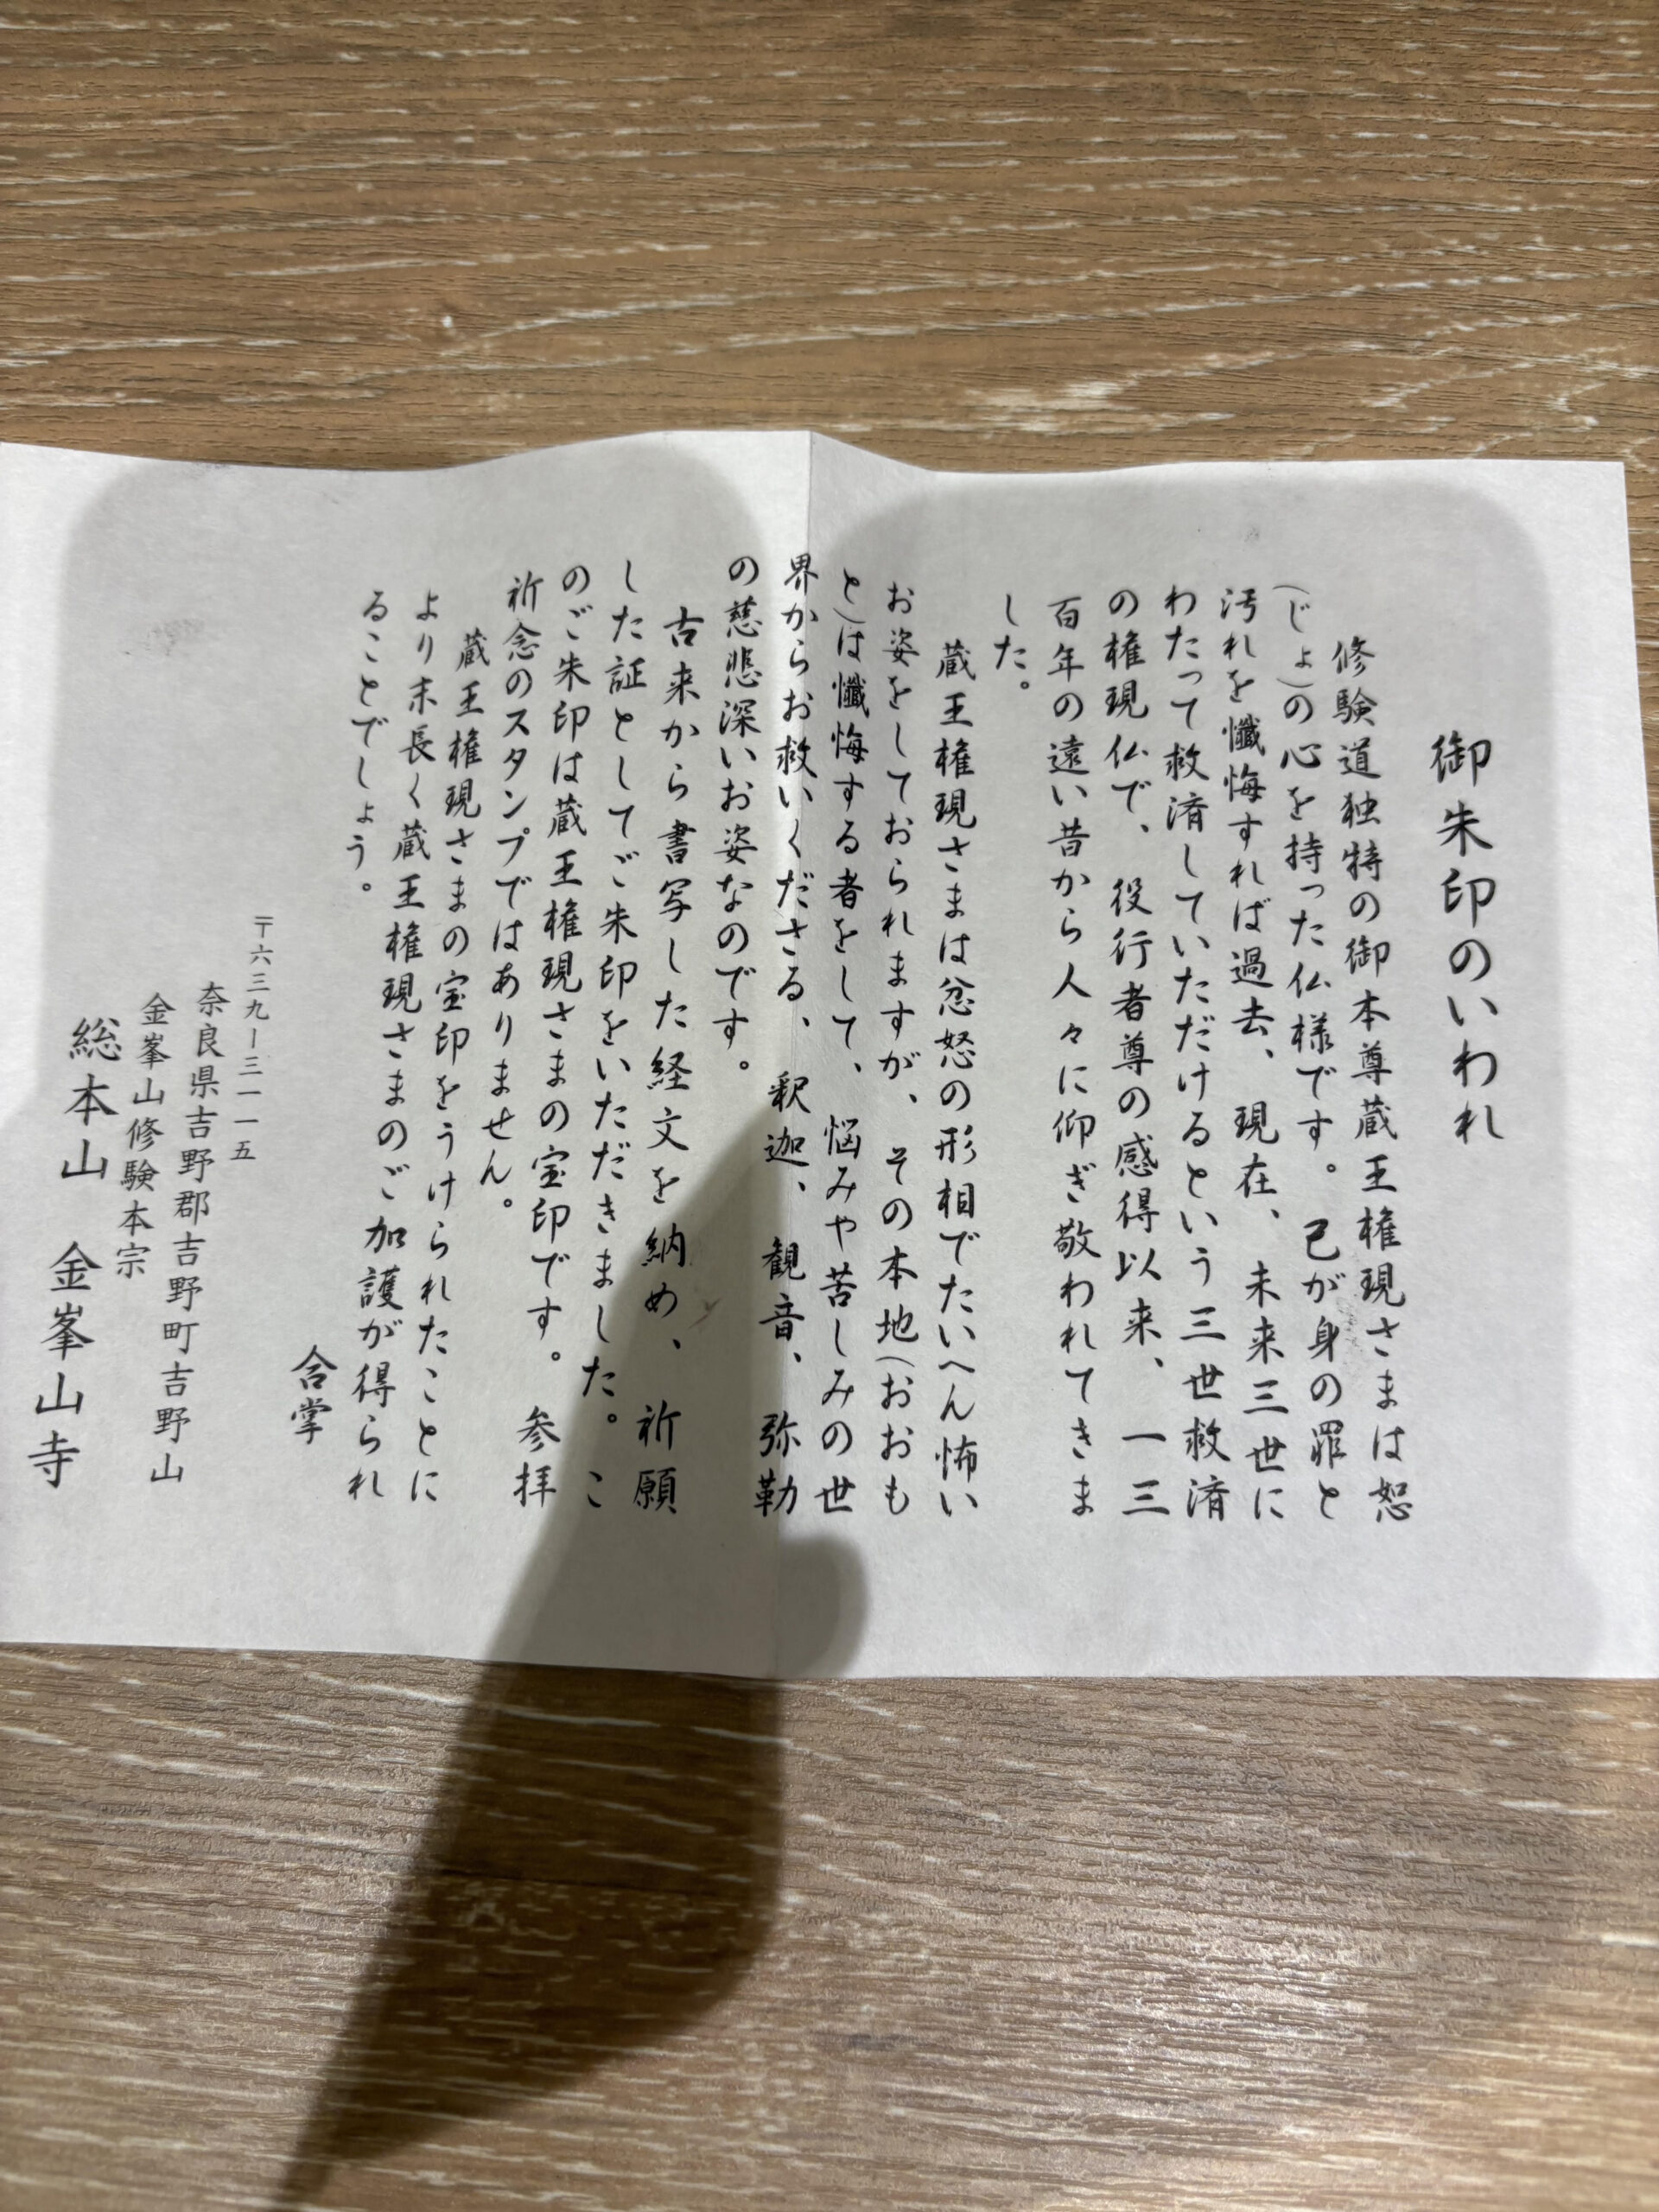 御朱印のいわれ
修験道独特の御本尊蔵王権現さまは恕
(じょ)の心を持った仏様です。己が身の罪と
汚れを懺悔すれば過去、現在、未来三世に
わたって救済していただけるという三世救済
の権現仏で、役行者尊の感得以来、一三
百年の遠い昔から人々に仰ぎ敬われてきま
した。
蔵王権現さまは忿怒の形相でたいへん怖い
お姿をしておられますが、その本地(おおも
と)は懺悔する者をして、悩みや苦しみの世
界からお救いくださる、釈迦、観音、弥勒
の慈悲深いお姿なのです。
古来から書写した経文を納め、祈願
した証としてご朱印をいただきました。こ
のご朱印は蔵王権現さまの宝印です。参拝
祈念のスタンプではありません。
蔵王権現さまの宝印をうけられたことに
より末長く蔵王権現さまのご加護が得られ
ることでしょう。
合掌
〒六三九ー三一一五
奈良県吉野郡吉野町吉野山
金峯山修験本宗
総本山 金峯山寺